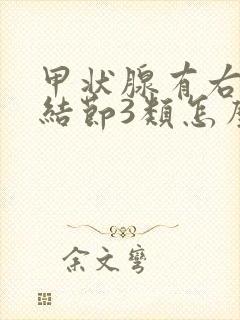 甲状腺有右
結節3類怎
余文彎